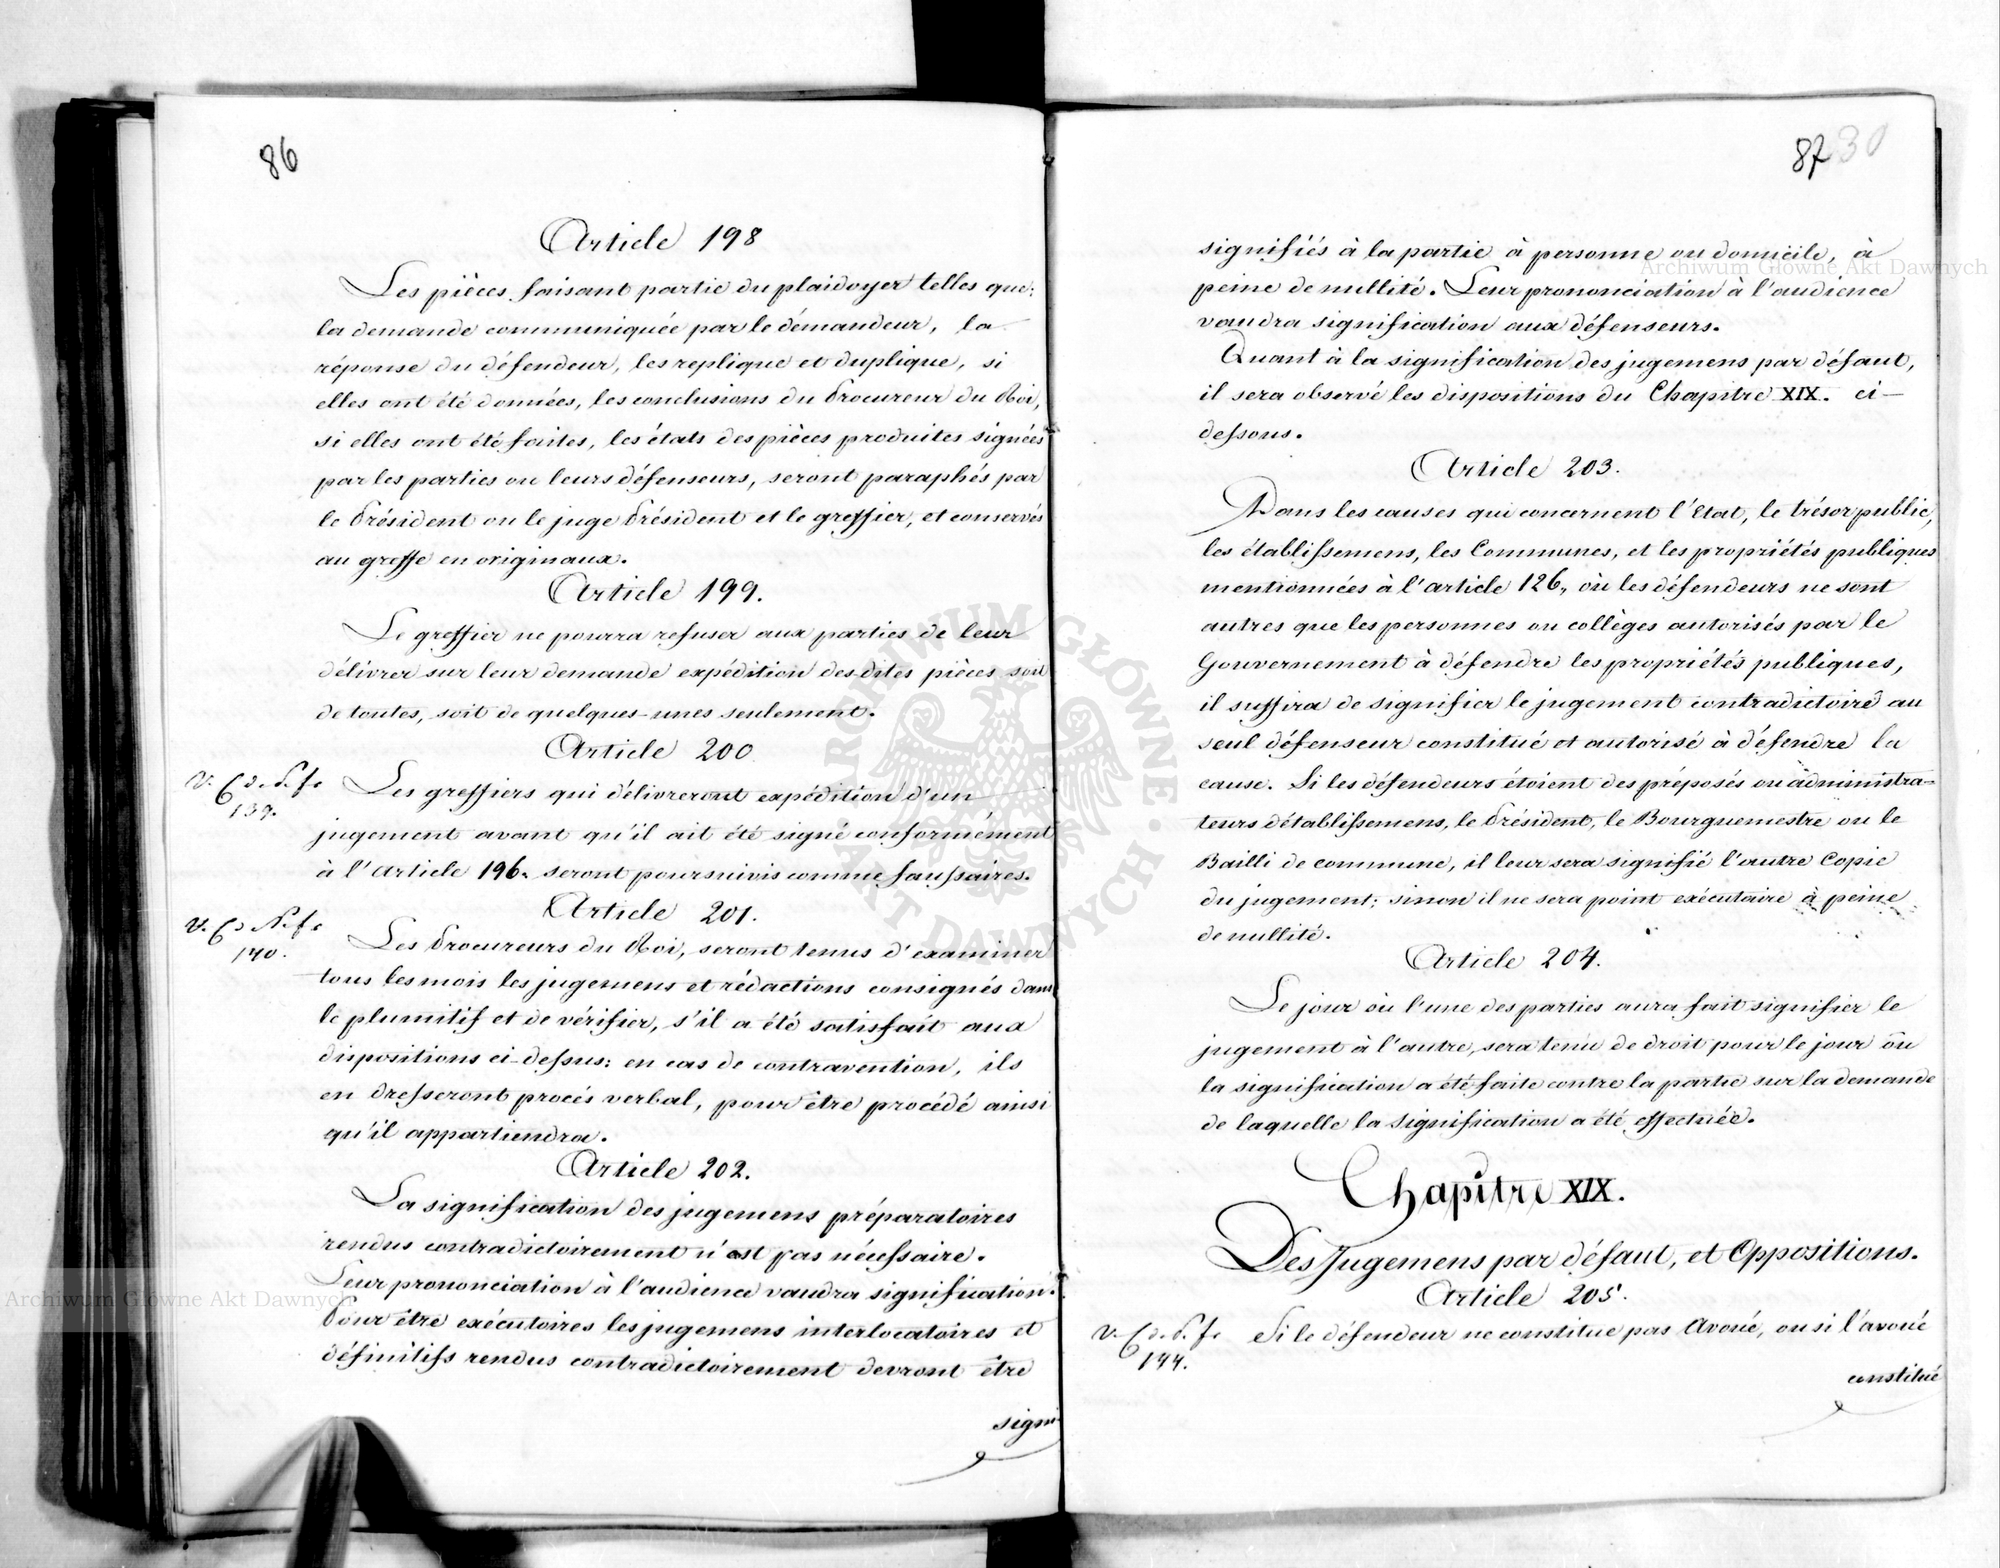 86
Article 198
Les pièces faisant partie du plaidoyer telles que:
la demande communiquée par le démandeur, la
réponse du défendeur, les replique et duplique, si
elles ont été données, les conclusions du Procureur du Roi,
si elles ont été faites, les états des pièces produites signées
par les parties ou leurs défenseurs, seront paraphés par
le Président ou le juge Président et le greffier, et conservés
au greffe en originaux.
Article 199.
Le greffier ne pourra refuser aux parties de leur
délivrer sur leur demande expédition des-dites pièces soit
de toutes, soit de quelques-unes seulement.
Article 200
V. C. d. P. f.
139.
Les greffiers qui délivreront expédition d'un
jugement avant qu'il ait été signé conformément
à l'Article 196. seront poursuivis comme faussaires.
Article 201.
V. C. d. P. f.
140.
Les Procureurs du Roi, seront tenus d'examiner
tous les mois les jugemens et rédactions consignés dans
le plumitif et de vérifier, s'il a été satisfait aux
dispositions ci-dessus: en cas de contravention, ils
en dresseront procès verbal, pour être procédé ainsi
qu'il appartiendra.
Article 202.
La signification des jugemens préparatoires
rendus contradictoirement n'est pas nécessaire.
Leur prononciation à l'audience vaudra signification.
Pour être exécutoires les jugemens interlocutoires et
définitifs rendus contradictoirement devront être
signi
87 30
signifiés à la partie à personne ou domicile, à
peine de nullité. Leur prononciation à l'audience
vaudra signification aux défenseurs.
Quant à la signification des jugemens par défaut,
il sera observé les dispositions du Chapitre XIX. ci-
dessous.
Article 203.
Dans les causes qui concernent l'Etat, le trésor public,
les établissemens, les Communes, et les propriétés publiques
mentionnées à l'article 126., où les défendeurs ne sont
autres que les personnes ou collèges autorisés par le
Gouvernement à défendre les propriétés publiques,
il suffira de signifier le jugement contradictoire au
seul défenseur constitué et autorisé à défendre la
cause. Si les défendeurs étoient des préposés ou administra-
teurs d'établissemens, le Président, le Bourguemestre ou le
Bailli de commune, il leur sera signifié l'autre Copie
du jugement: sinon il ne sera point exécutoire à peine
de nullité.
Article 204.
Le jour où l'une des parties aura fait signifier le
jugement à l'autre, sera tenu de droit pour le jour où
la signification a été faite contre la partie sur la demande
de laquelle la signification a été effectuée.
Chapitre XIX.
Des Jugemens par défaut, et Oppositions.
Article 205.
V. C. d. P. f.
149.
Si le défendeur ne constitue pas Avoué, ou si l'avoué
constitué
Archiwum Główne Akt Dawnych
Archiwum Główne Akt Dawnych
ARCHIWUM GŁÓWNE · AKT DAWNYCH ·